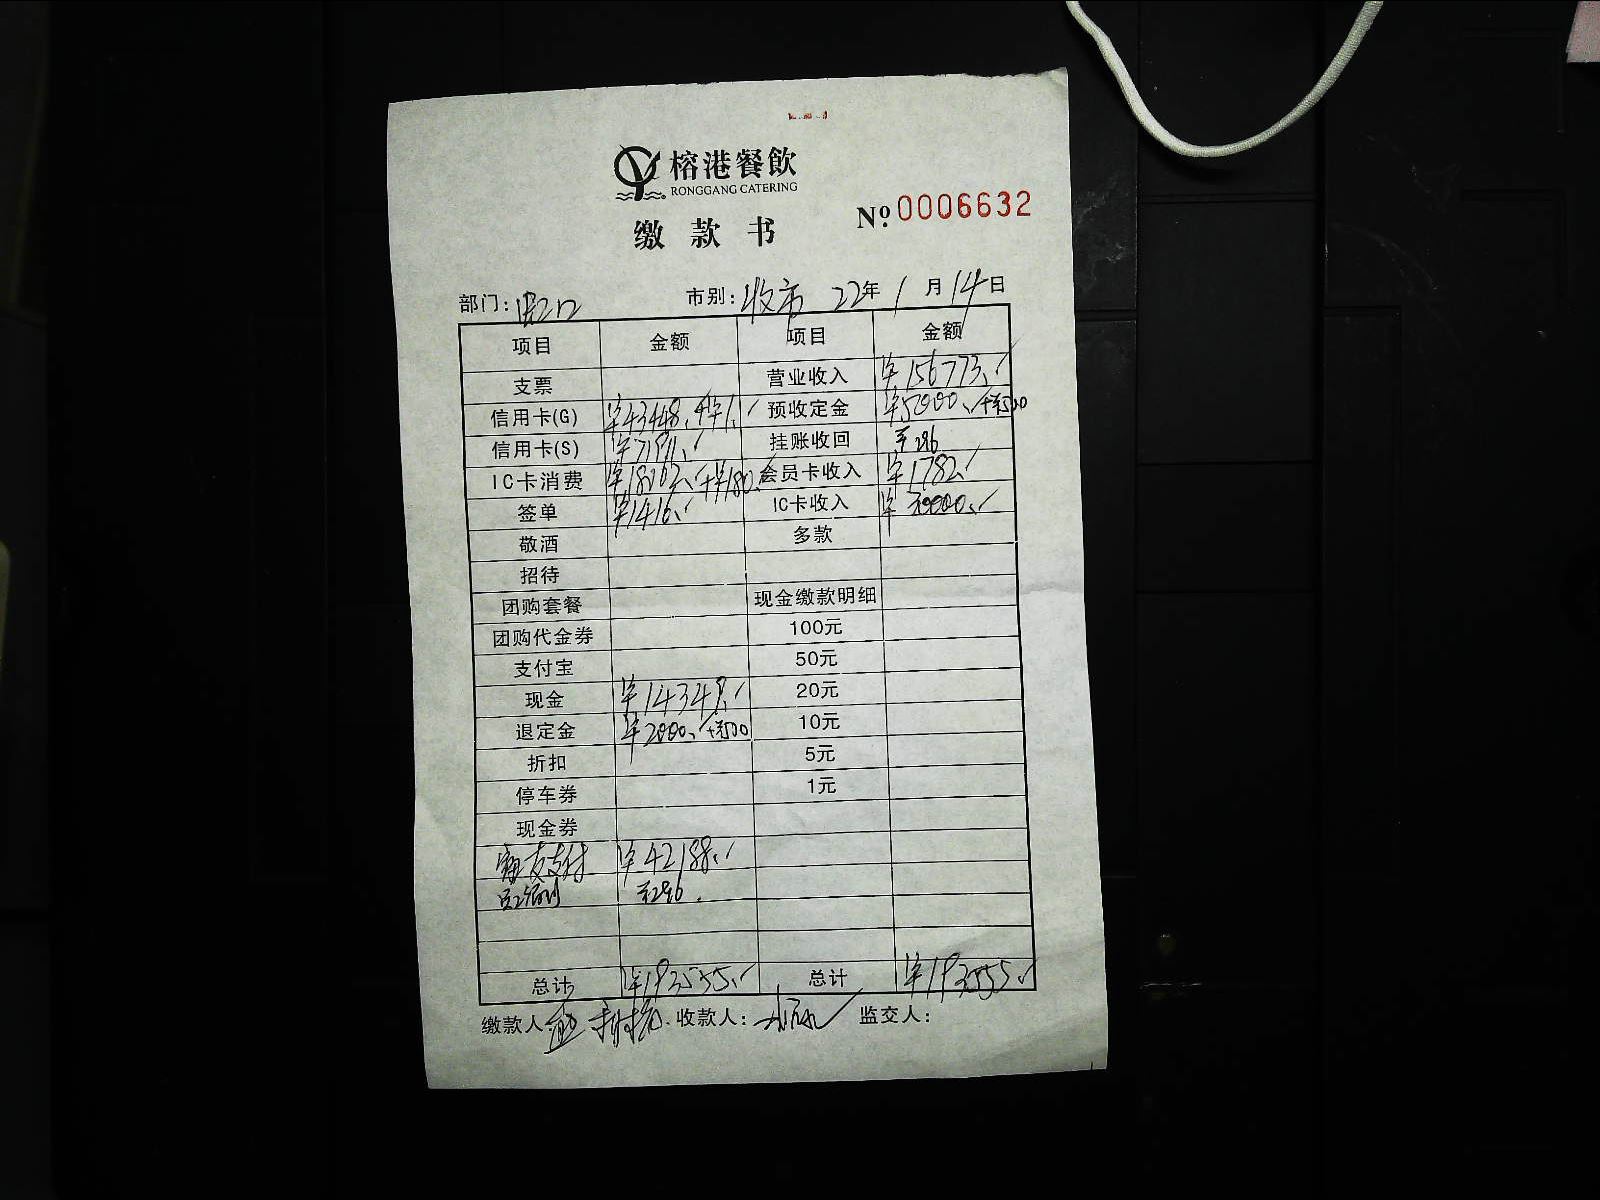 榕港餐飲
RONGGANG CATERING
缴款书
№ 0006632
部门: 市别: 收市 22年 1月 14日
项目 金额 项目 金额
支票 营业收入 ¥156773.
信用卡(G) ¥43448. +¥1. 预收定金 ¥5000. +¥500
信用卡(S) 挂账收回 ¥296
IC卡消费 +¥180. 会员卡收入 ¥1782.
签单 ¥1416. IC卡收入 ¥30000.
敬酒 多款
招待
团购套餐 现金缴款明细
团购代金券 100元
支付宝 50元
现金 ¥14349. 20元
退定金 ¥2000. +¥500 10元
折扣 5元
停车券 1元
现金券
支付 ¥42188.
¥296.
总计 ¥193555. 总计 ¥193555.
缴款人: 收款人: 监交人: